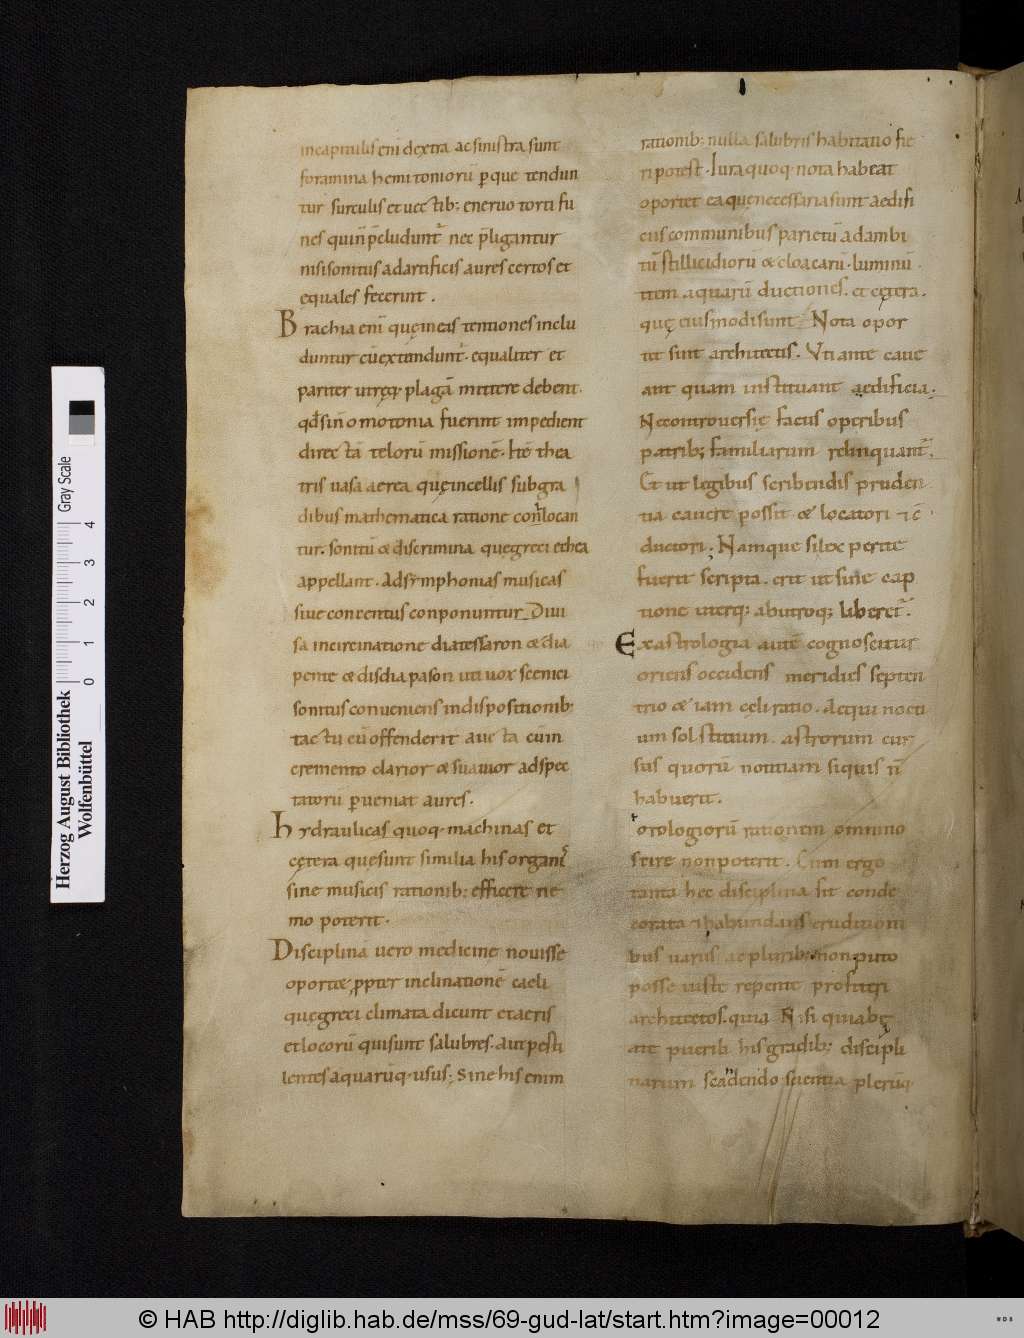 incapitulis eni dextra ac sinistra sunt
foramina hemitoniorū p que tendun
tur surculis et uectib: eneruo torti fu
nes qui n̄ p̄cludunt᷑ nec p̄ligantur
nisi sonitus ad artificis aures certos et
equales fecerint .
Brachia eni᷑ quę incis tentiones inclu
duntur cū extendunt᷑ . equaliter et
pariter utręq; plagā mittere debent .
qđ si n̄ omotonia fuerint impedient
directā telorū missionē . Itē thea
tris uasa aerea quę incellis sub gra
dibus mathematica ratione conlocan
tur . sonitū & discrimina que greci echea
appellant . Ad symphonias musicas
siue concentus conponuntur Diui
sa in circinatione diatessaron & dia
pente & disdiapason uti uox scenici
sonitus conueniens in dispositionib:
tactu cū offenderit aucta cū in
cremento clarior & suauior ad spec
tatorū pueniat aures .
hydraulicas quoq . machinas et
cętera quę sunt similia his organis
sine musicis rationib: efficere ne
mo poterit .
Disciplina uero medicine nouisse
oportet . ppter inclinationē caeli
quę greci climata dicunt et aeris
et locorū qui sunt salubres . aut pesti
lentes aquarūq . usus ; Sine his enim
rationib: nulla salubris habitatio fie
ri potest . Iura quoq . nota habeat
oportet ea quę necessaria sunt aedifi
ciis communibus parietū ad ambi
tū stillicidiorū & cloacarū . luminū .
item aquarū ductiones . et cętera .
quę eiusmodi sunt Nota opor
tet sint architectis . Uti ante caue
ant quam instituant aedificia .
Ne controuersię factis operibus
patrib; familiarum relinquant᷑ .
Et ut legibus scribendis pruden
tia cauere possit & locatori & cō
ductori ; Namque si lex perite
fuerit scripta . erit ut sine cap
tione uterq; ab utroq; liberet᷑ .
Ex astrologia autē cognoscitur
oriens occidens meridies septen
trio & iam celi ratio . Aequi nocti
um solstitium . astrorum cur
sus quorū notitiam si quis n̄
habuerit .
orologiorū rationem omnino
scire non poterit . Cum ergo
tanta hec disciplina sit conde
corata & habundans eruditioni
bus uariis ac pluribus non puto
posse iuste repente profiteri
architectos . quia Nisi qui ab ę
ate puerili his gradib; discipli
narum scandendo scientia plerūq;
Herzog August Bibliothek
Wolfenbüttel
0 1 2 3 4
Gray Scale
© HAB http://diglib.hab.de/mss/69-gud-lat/start.htm?image=00012